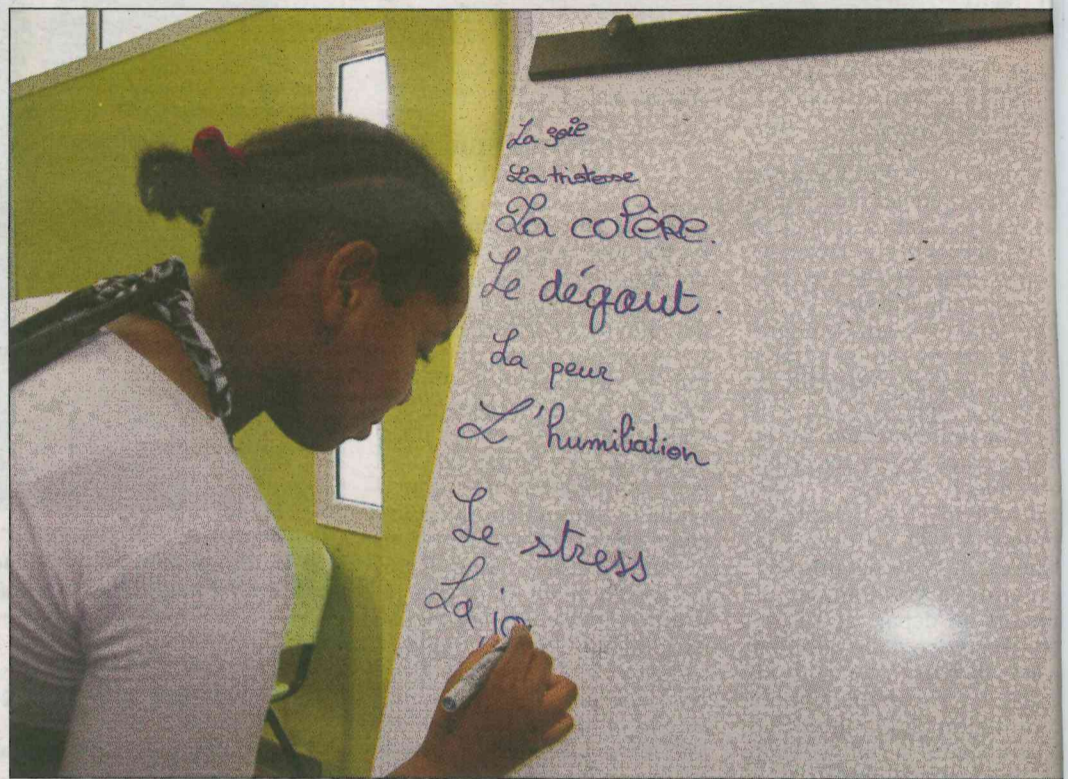 La joie
La tristesse
La colère.
Le dégout.
La peur
L'humiliation
Le stress
La jo